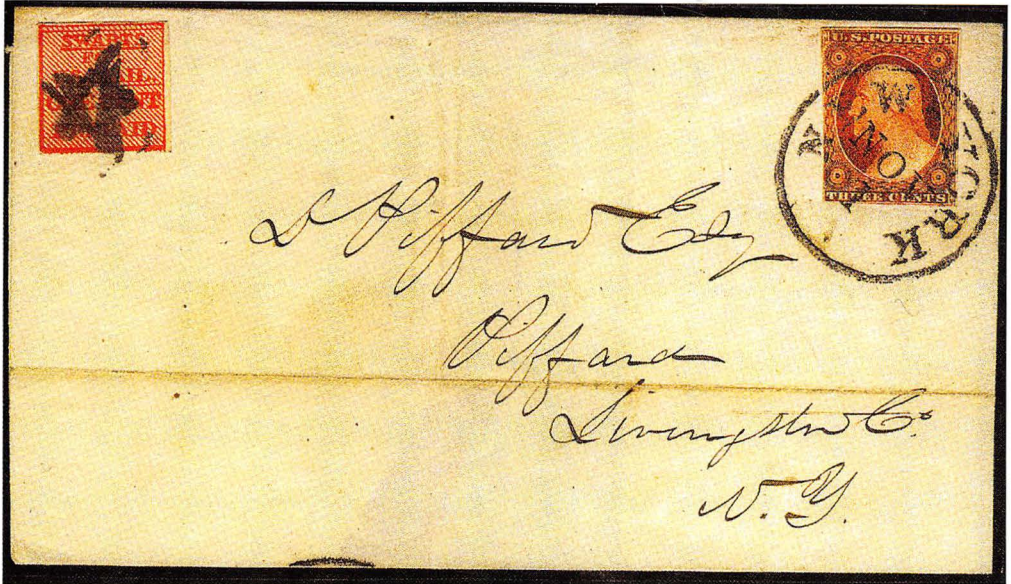 SWARTS
U.S. POSTAGE
THREE CENTS
NEW YORK
NOV
D Piffard Esq
Piffard
Livingston Co.
N.Y.